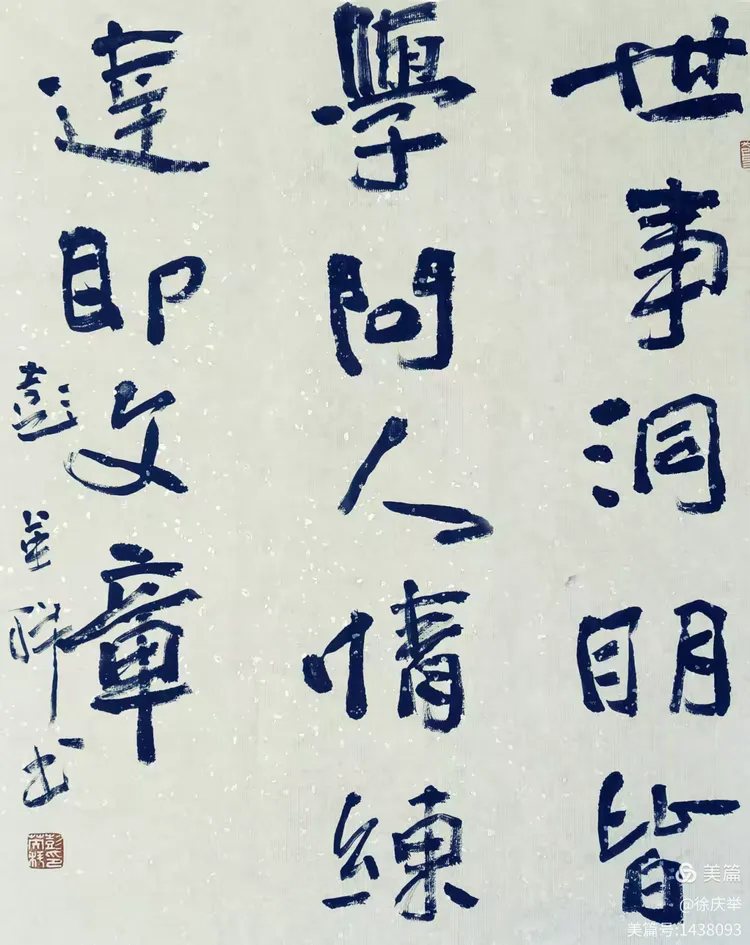 世事洞明皆
學問人情練
達即文章
彭 书
美篇
@徐庆举
美篇号:1438093